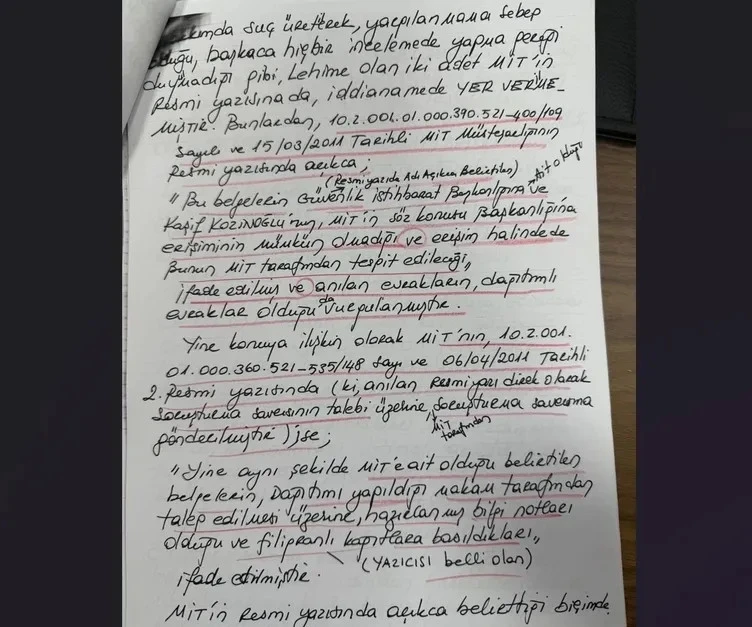 hakkımda suç üreterek, yargılanmama sebep
olduğu, başkaca hiçbir incelemede yapma gereği
duymadığı gibi, Lehime olan iki adet MİT'in
Resmi yazısına da, iddianamede YER VERME-
MİŞTİR. Bunlardan, 10.2.001.01.000.390.521-400/109
Sayılı ve 15/03/2011 Tarihli MİT Müsteşarlığının
Resmi yazısında açıkca;
(Resmi yazıda Adı Açıkca Belirtilen) Ait olduğu
" Bu belgelerin Güvenlik istihbarat Başkanlığına ve
Kaşif KOZİNOĞLU'nun, MİT'in söz konusu Başkanlığına
erişiminin mümkün olmadığı ve erişim halinde de
Bunun MİT tarafından tespit edileceği,,
ifade edilmiş ve anılan evrakların, dağıtımlı
evraklar olduğu da vurgulanmıştır.
Yine konuya ilişkin olarak MİT'nın, 10.2.001.
01.000.360.521-535/148 Sayı ve 06/04/2011 Tarihli
2. Resmi yazısında (ki, anılan Resmi yazı direk olarak
Soruşturma savcısının talebi üzerine, soruşturma savcısına
MİT tarafından
gönderilmiştir) ise;
" Yine aynı şekilde MİT'e ait olduğu belirtilen
belgelerin, Dağıtımı yapıldığı makam tarafından
talep edilmesi üzerine, hazırlanmış bilgi notları
olduğu ve filigranlı kağıtlara basıldıkları,,
(YAZICISI belli olan)
ifade edilmiştir.
MİT'in Resmi yazısında açıkca belirttiği biçimde